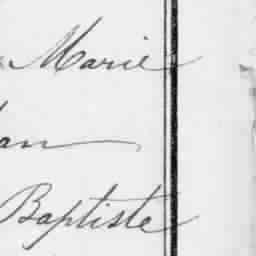 Marie
an
Baptiste